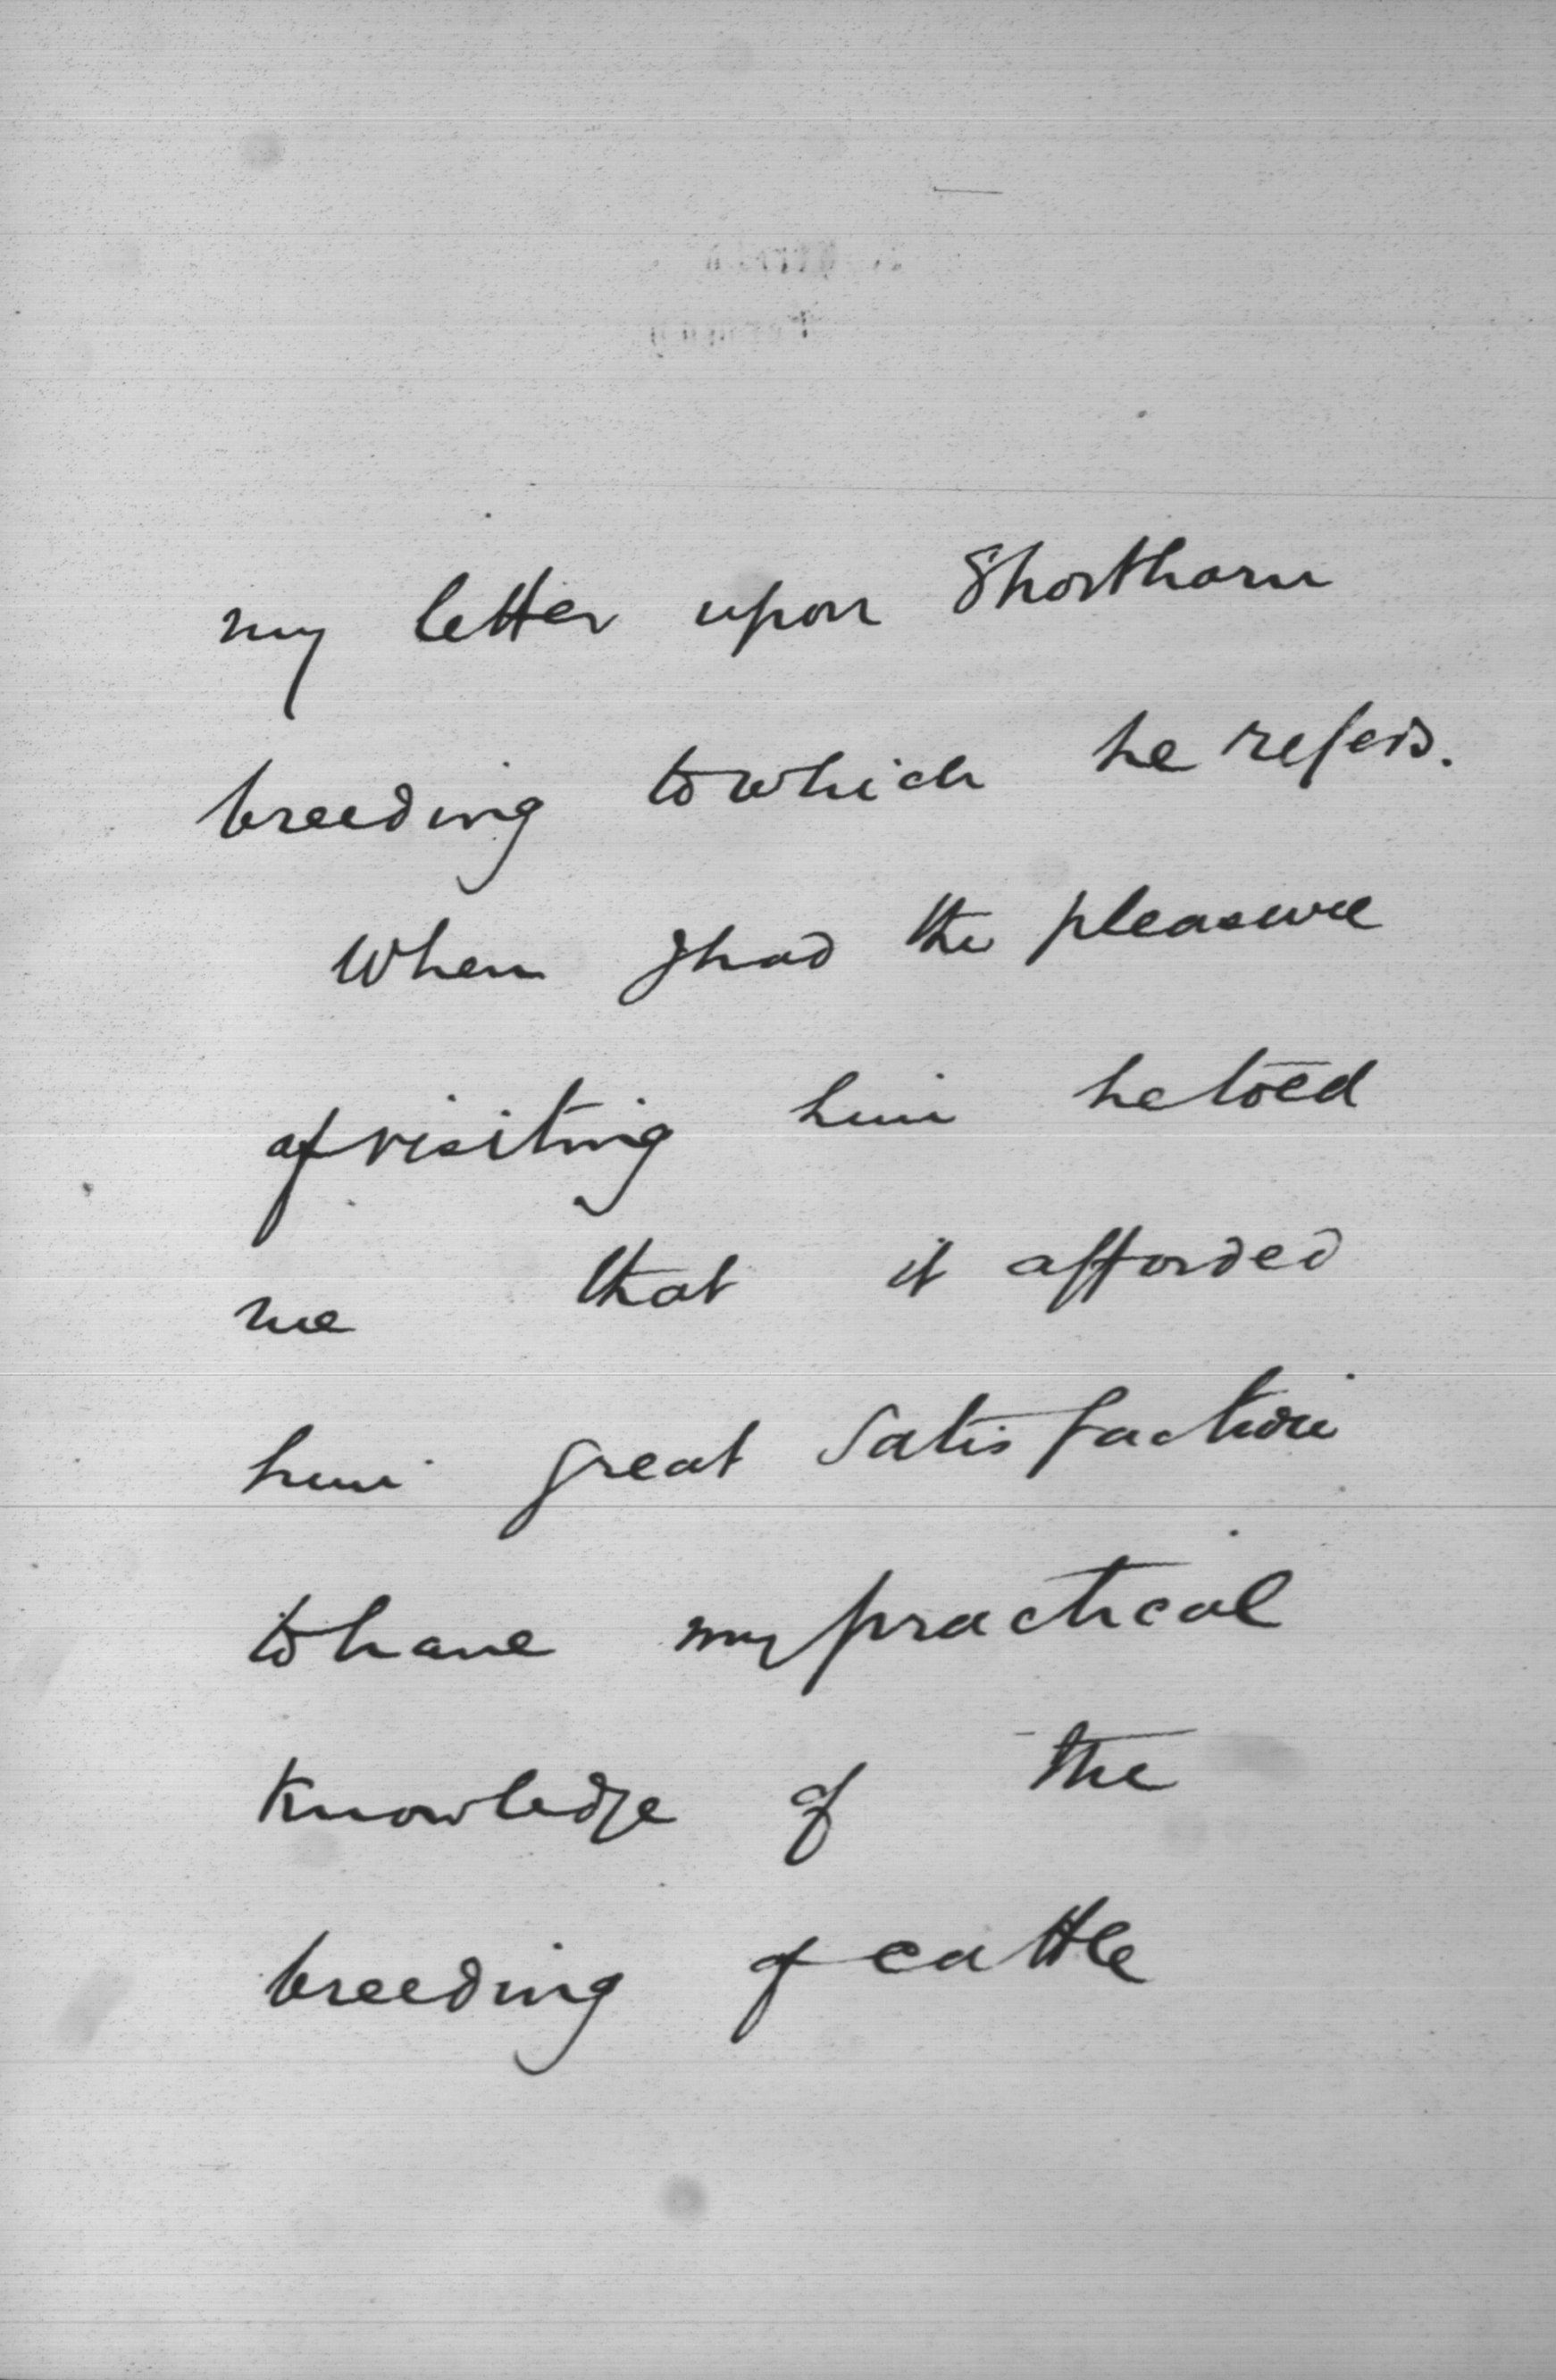 my letter upon Shorthorn
breeding to which he refers.
When I had the pleasure
of visiting him he told
me that it afforded
him great satisfaction
to have my practical
knowledge of the
breeding of cattle